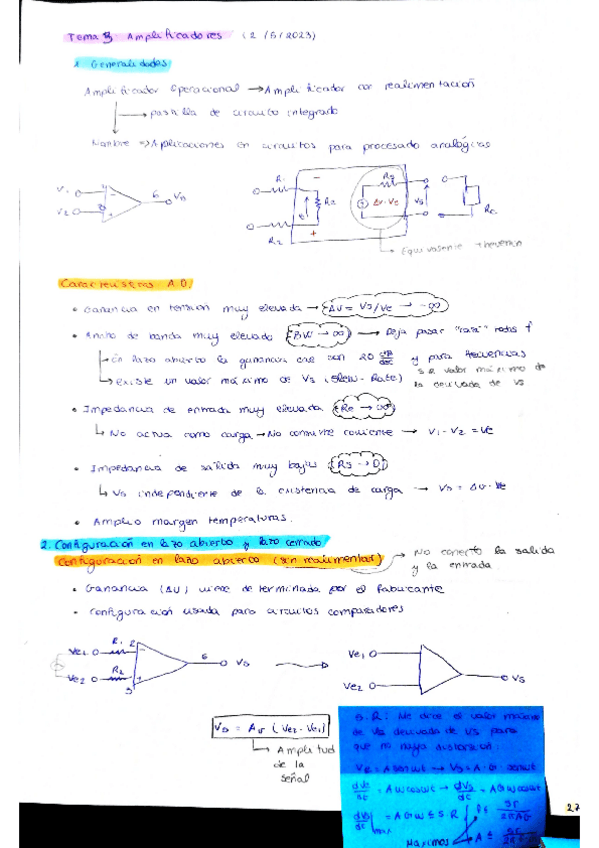 Tema 3 Amplificadores (2/5/2023)
1 Generalidades
Amplificador Operacional → Amplificador con realimentación
→ pastilla de circuito integrado
Nombre => Aplicaciones en circuitos para procesado analógicas
V1 V2 6 Vo
R1 R2 Re
+
Equivalente thevenin
Características A.O.
• Ganancia en tensión muy elevada → AU = Vs/Ve → -∞
• Ancho de banda muy elevado (BW → ∞) → Deja pasar "casi" todas f
en lazo abierto la ganancia cae con 20 y para frecuencias
→ existe un valor máximo de Vs (Slew-Rate) S.R valor máximo de
la derivada de Vs
• Impedancia de entrada muy elevada (Re → ∞)
↳ No actúa como carga → No consume corriente → V1 - V2 = Ve
• Impedancia de salida muy bajas (Rs → 0)
↳ Vs independiente de la existencia de carga → Vs = AU · Ve
• Amplio margen temperaturas.
2. Configuración en lazo abierto y lazo cerrado
Configuración en lazo abierto (sin realimentar) → No conecto la salida
y la entrada
• Ganancia (AU) viene determinada por el fabricante
• Configuración usada para circuitos comparadores
Ve1 R1 2 6 Vs Ve1
Ve2 R2 3 Ve2 Vs
Vs = AU (Ve2 - Ve1)
↳ Amplitud
de la
señal
S.R: Me dice el valor máximo
de la derivada de Vs para
que no haya distorsión
Ve = A sen ωt → Vs = A · G sen ωt
= A ω cos ωt → = A G ω cos ωt
= A G ω ≤ S.R
max
Máximos
27